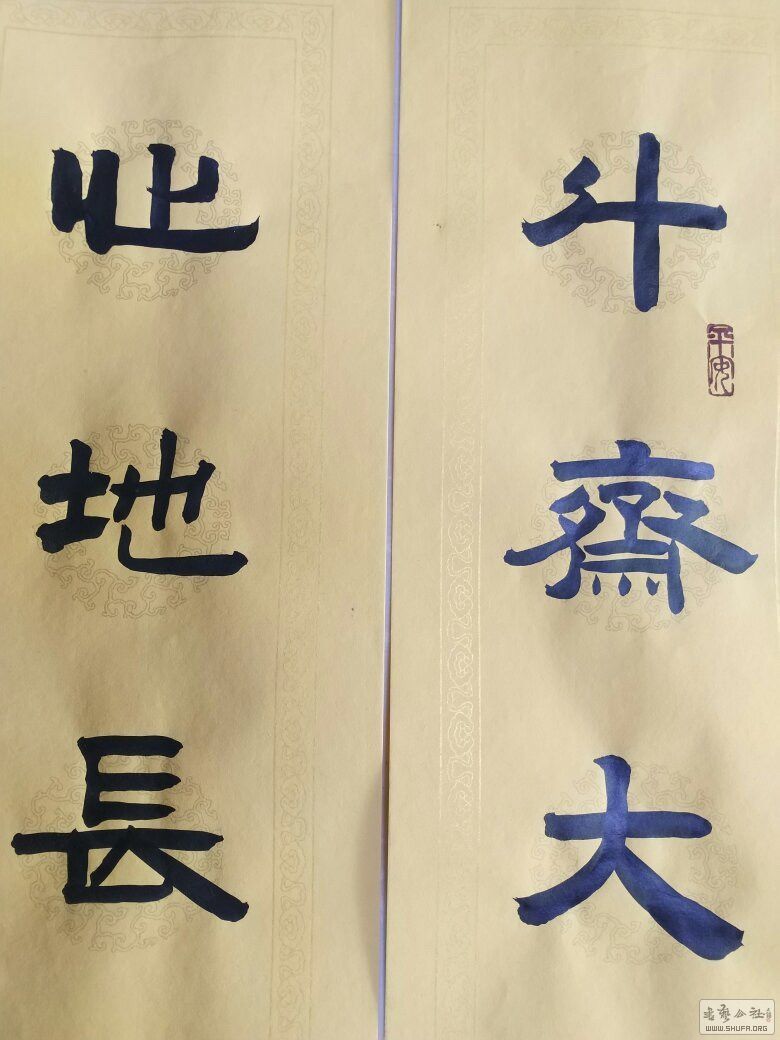 斗齋大
平安
此地長
书艺公社
WWW.SHUFA.ORG